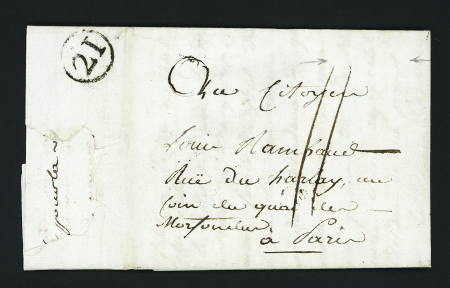 21
Au Citoyen
Louis Rambaud
Ruë Du harlay, au
Coin du quai des
Morfondus
à Paris